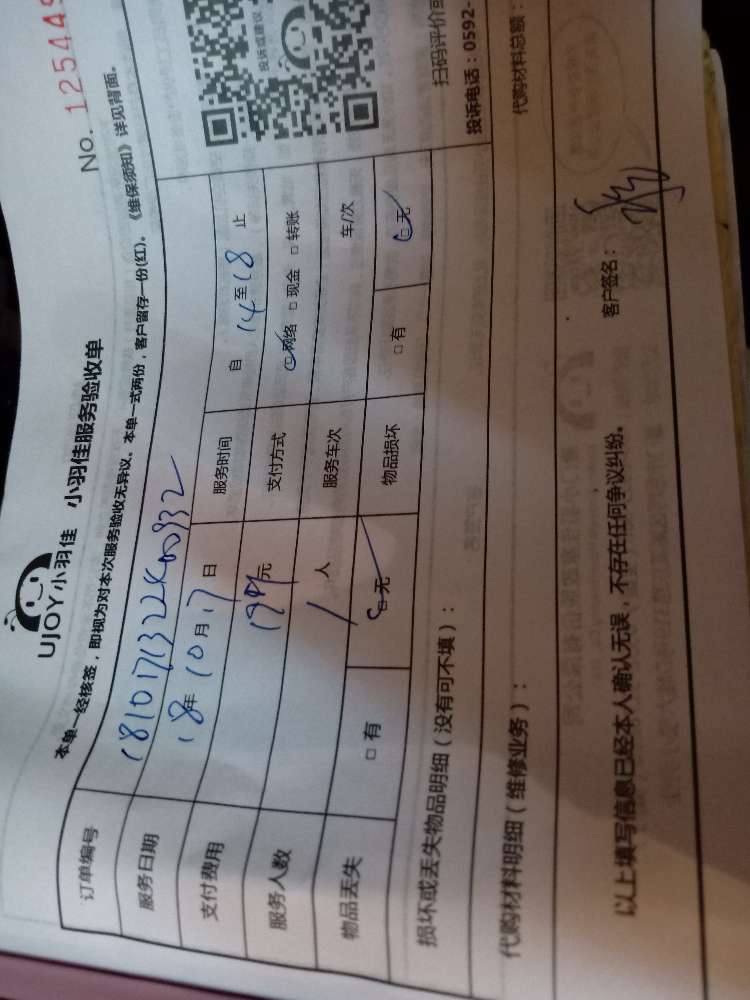 No. 125449
UJOY小羽佳 小羽佳服务验收单
本单一经核签，即视为对本次服务验收无异议。本单一式两份，客户留存一份(红)。《维保须知》详见背面。
订单编号 1810171322K00932
服务日期 18年 10月 17日 服务时间 自 14至18 止
支付费用 元 支付方式 网络 □ 现金 □ 转账
服务人数 1 人 服务车次 车/次
物品丢失 □ 有 □ 无 物品损坏 □ 有 □ 无
投诉或建议
扫码评价或
投诉电话：0592-
损坏或丢失物品明细（没有可不填）：
代购材料明细（维修业务）： 代购材料总额：
以上填写信息已经本人确认无误，不存在任何争议纠纷。 客户签名：